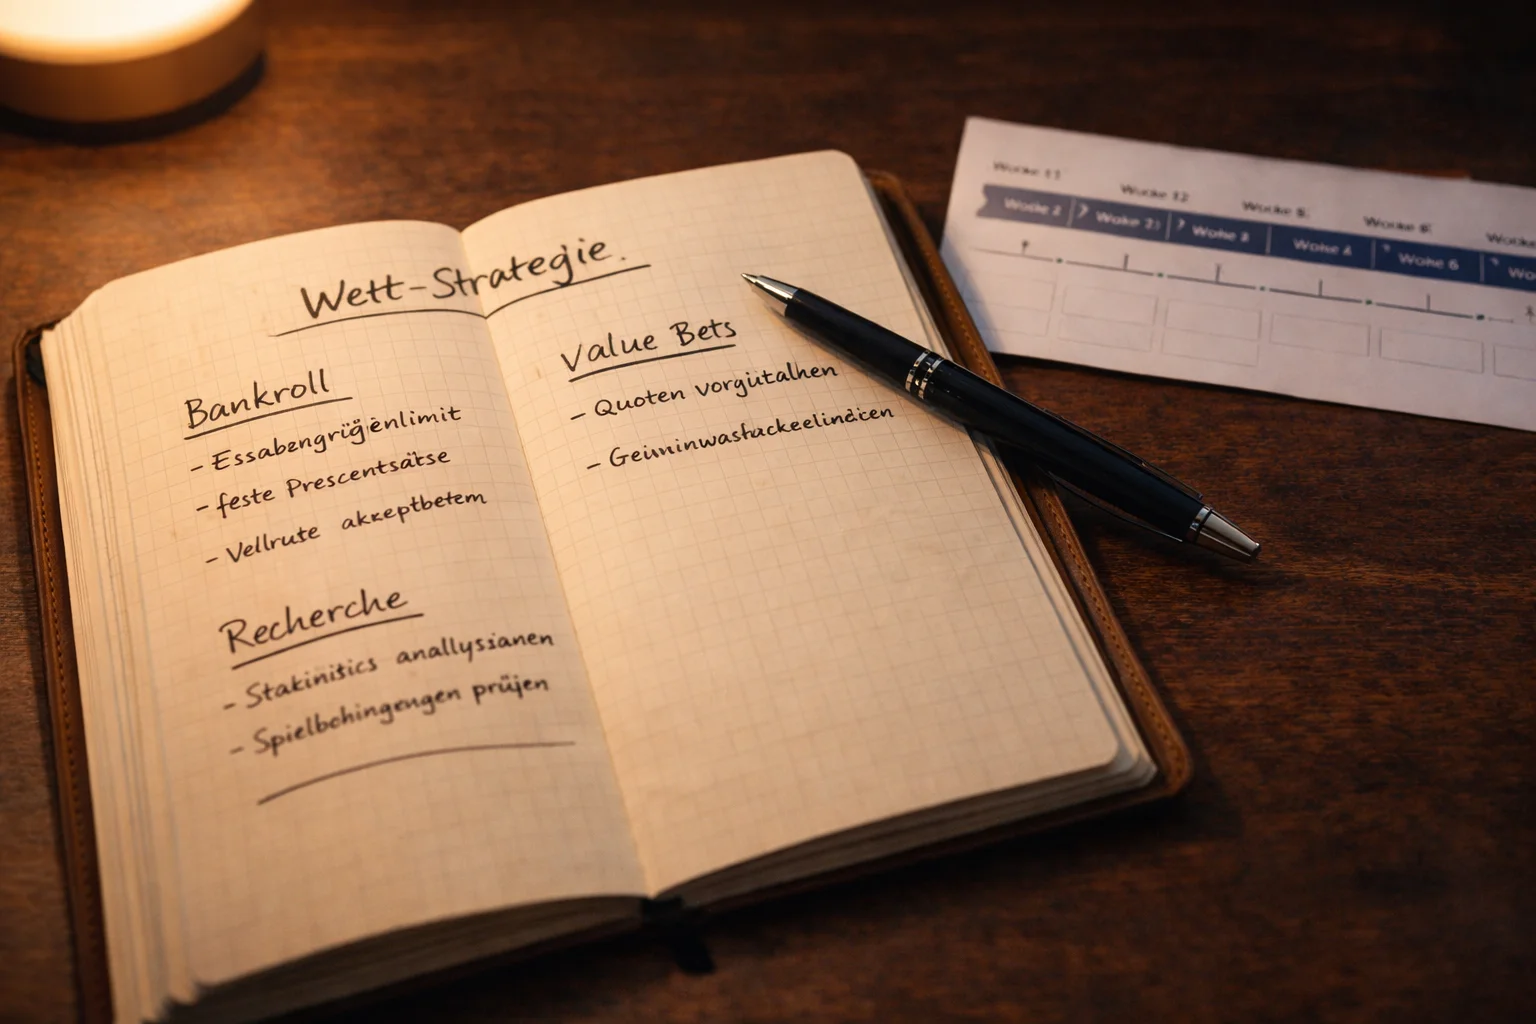 Wett-Strategie.
Bankroll
- Essabengrigenlimit
- feste Prescentsätse
- Vellrute akxeptbetem
Recherche
- Stakinitics anallyssanen
- Spielbohingengen prüjen
Value Bets
- Quoten vorgütalhen
- Geiminwasfackeelindicen
Woche 11
Woche 12
Woche 2
Woche 3
Woche 4
Woche 6